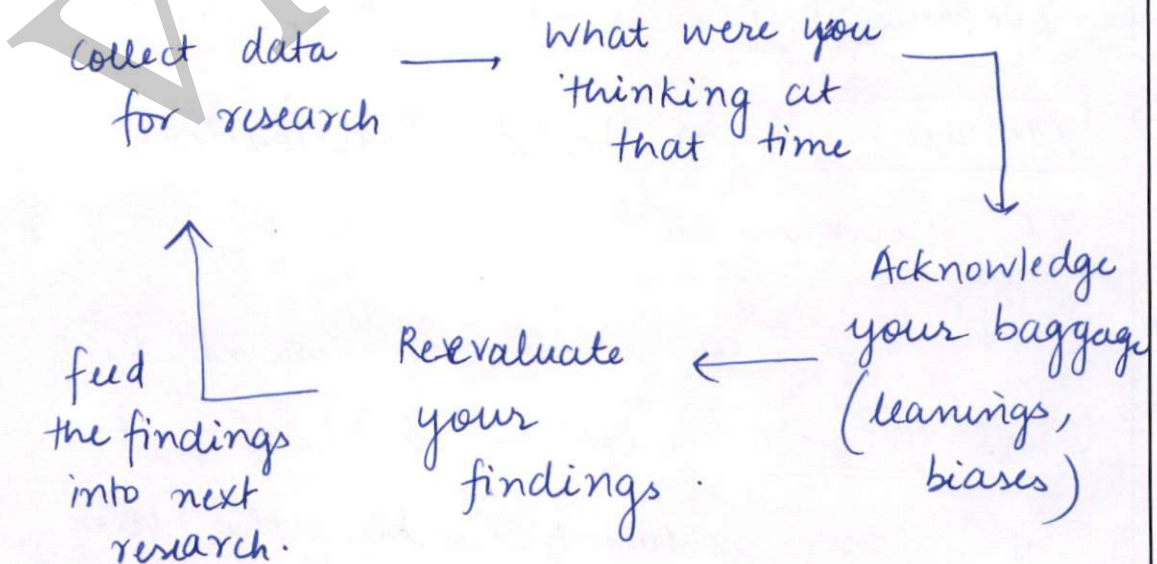 Collect data
for research
What were you
thinking at
that time
Acknowledge
your baggage
(leanings,
biases)
Reevaluate
your
findings.
feed
the findings
into next
research.